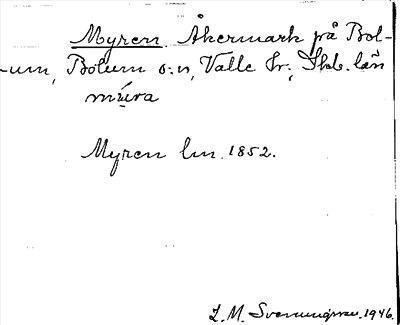 Myren. Åkermark på Bol-
-um, Bolum s:n, Valle hr., Skb. län
Myren lm. 1852.
L. M. Svenungsson. 1946.